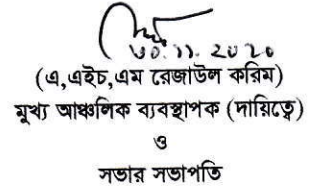 ৩০.১১.2020
(এ,এইচ,এম রেজাউল করিম)
মূখ্য আঞ্চলিক ব্যবস্থাপক (দায়িত্বে)
ও
সভার সভাপতি